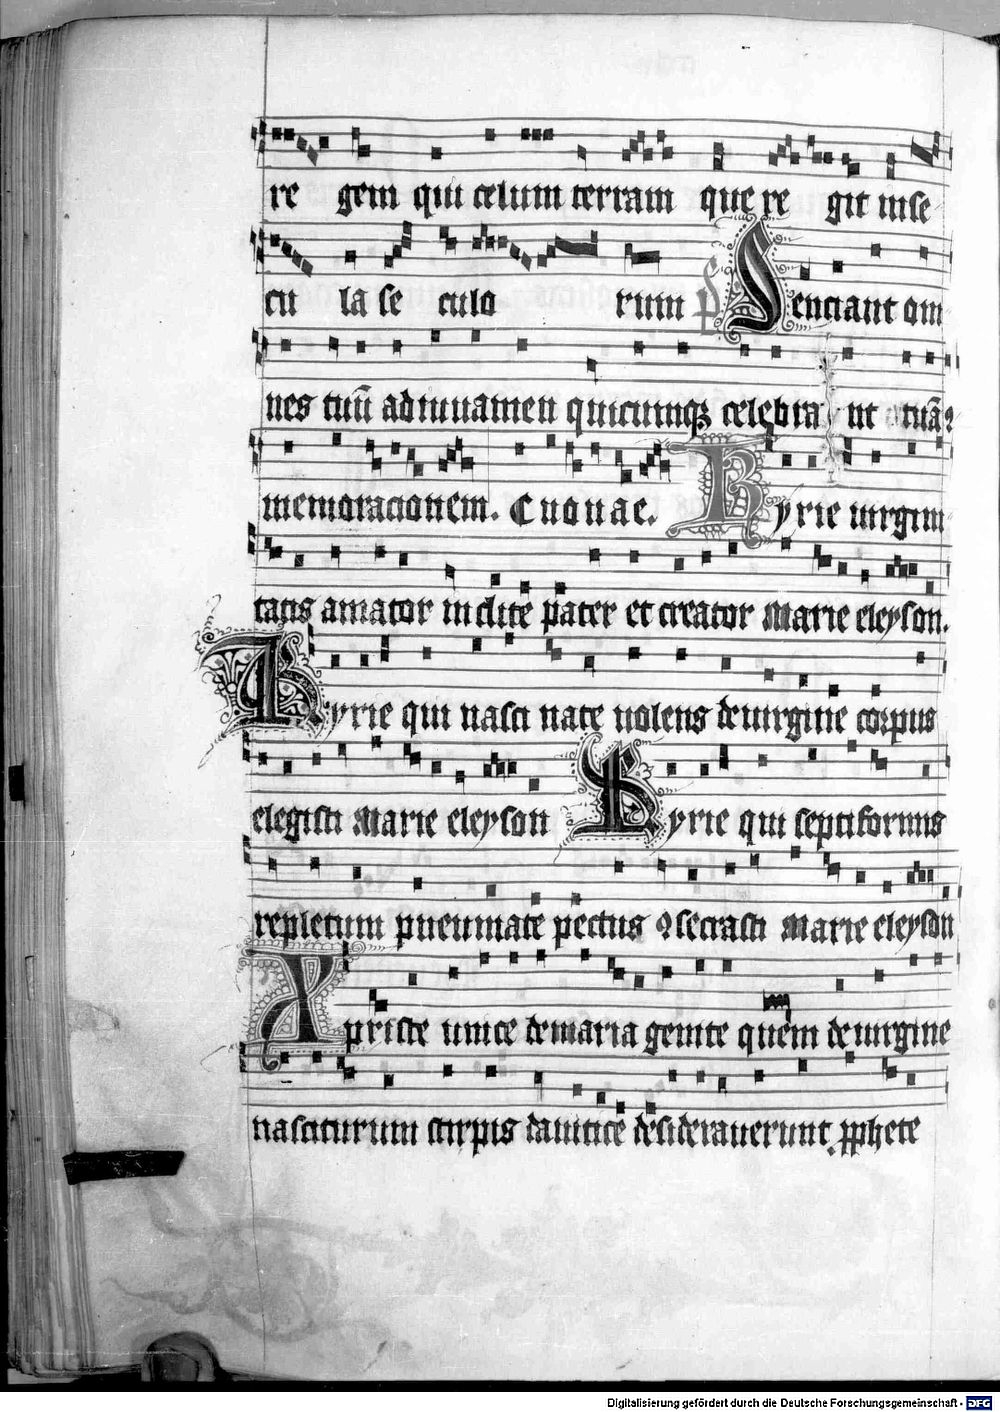 re gem qui celum terram que re git in se
cu la se culo rum p̄s Senciant om
nes tuū adiuuamen quicumqꝫ celebra nt tuā ꝯ
memoracionem. Euouae. Kyrie uirgini
tatis amator inclite pater et creator Marie eleyson.
Kyrie qui nasci nate uolens de uirgine corpus
elegisti Marie eleyson Kyrie qui septiformis
repletum pneumate pectus ꝯsecrasti Marie eleyson
Xpriste unice de maria genite quem de uirgine
nasciturum stirpis dauitice desiderauerunt ꝓphete
Digitalisierung gefördert durch die Deutsche Forschungsgemeinschaft - DFG